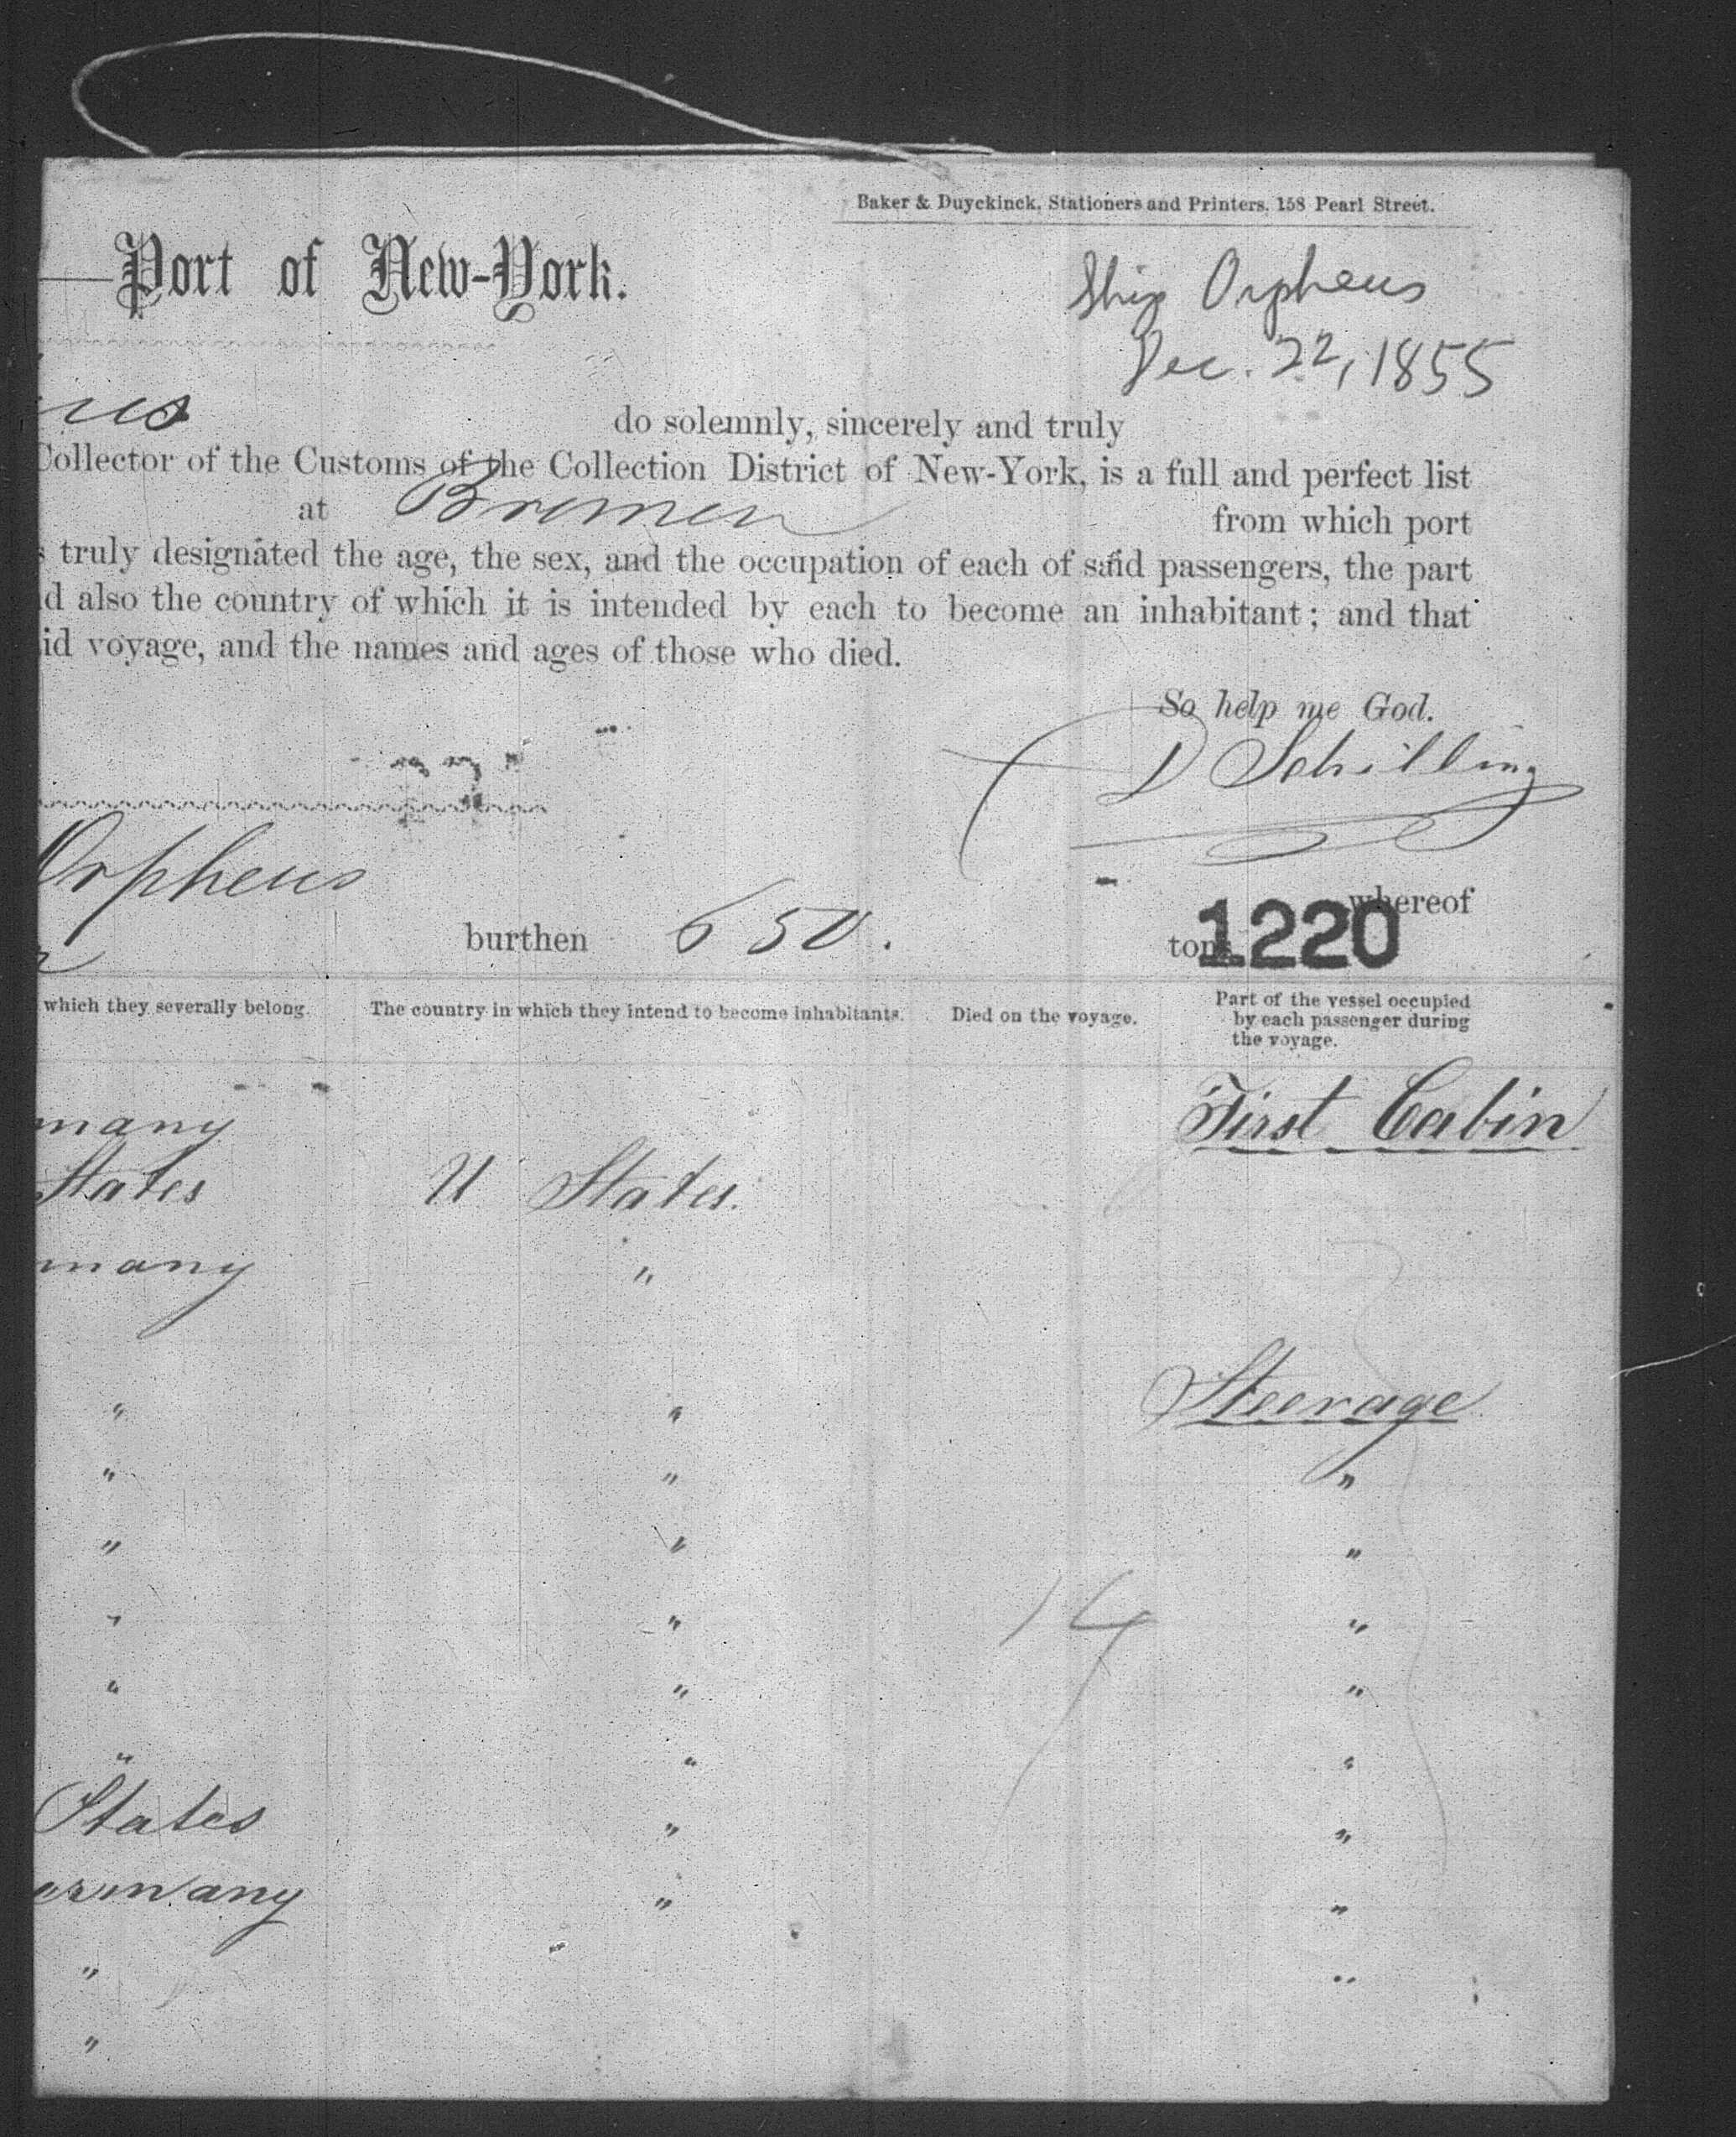 Baker & Duyckinck, Stationers and Printers, 158 Pearl Street.
Port of New-York.
Ship Orpheus
Dec. 22, 1855
us
do solemnly, sincerely and truly
Collector of the Customs of the Collection District of New-York, is a full and perfect list
at Bremen from which port
s truly designated the age, the sex, and the occupation of each of said passengers, the part
d also the country of which it is intended by each to become an inhabitant; and that
id voyage, and the names and ages of those who died.
So help me God.
D Schilling
Orpheus whereof
burthen 650. tons
1220
which they severally belong. The country in which they intend to become inhabitants. Died on the voyage. Part of the vessel occupied
by each passenger during
the voyage.
many First Cabin
States U States.
many "
" " Steerage
" " "
" " "
" " 14 "
" " "
" " "
States " "
ermany " "
" "
"